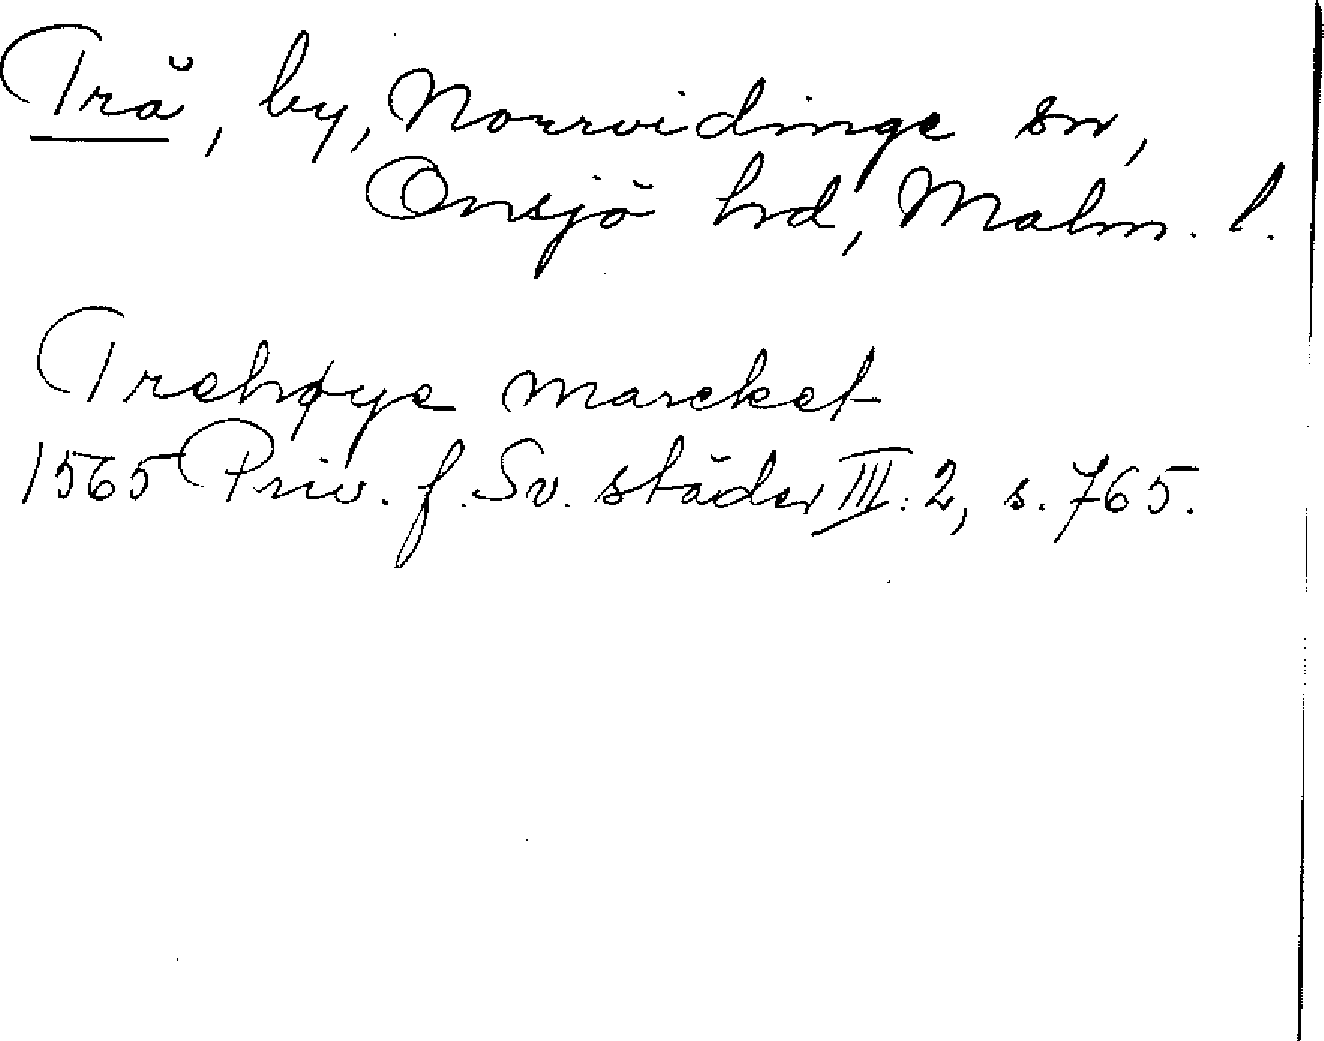 Trä, by, Norrvidinge sn,
Onsjö hrd, Malm. l.
Trehøye marcket
1565 Priv. f. Sv. städer III: 2, s. 765.